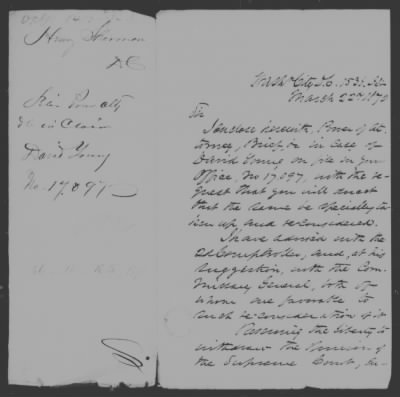 Henry Sherman
D.C.
in Claim
David Young
No. 17.097
Wash. City D.C.
March 22nd 1870
Sir
I enclose herewith, Power of At-
torney, Brief, &c in Case of
David Young on file in your
Office, No 17.097, with the re-
quest that you will direct
that the same be specially ta-
ken up, and be considered.
I have advised with the
2d Comptroller, and, at his
suggestion, with the Com-
missary General, both of
whom are favorable to
such reconsideration of it
Reserving the liberty to
withdraw the Opinion of
the Supreme Court,